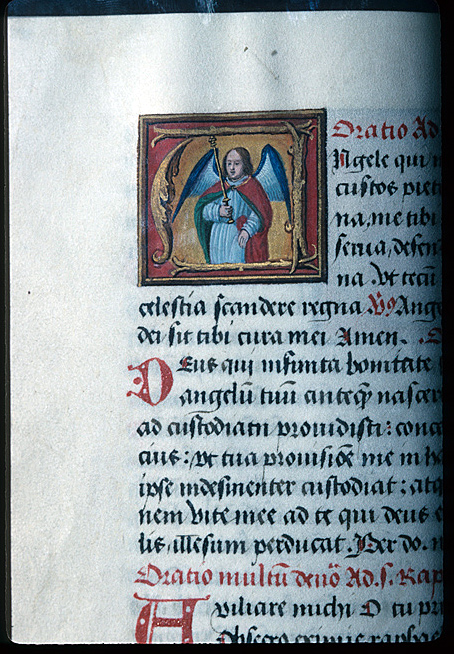 Oratio Ad
Ngele qui
custos piet
na, me tibi
serua, defen
na Vt tecū
celestia scandere regna V9 Ange
dei sit tibi cura mei Amen.
DEus qui infinita bonitate
angelū tuū anteqȝ nascer
ad custodiam prouidisti: conce
cius: vt tua prouisiōe me in h
ipse indesinenter custodiat: atq
nem vite mee ad te qui deus e
lis, illesum perducat. Per do.
Oratio multū deuō Ad .s. Rap
AUxiliare michi O tu pri
Obsecro eximie rapha